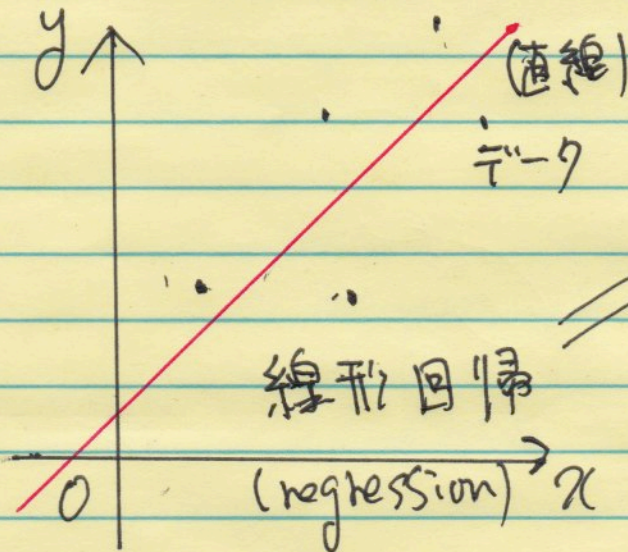 y
(直線)
データ
線形回帰
O
(regression) x